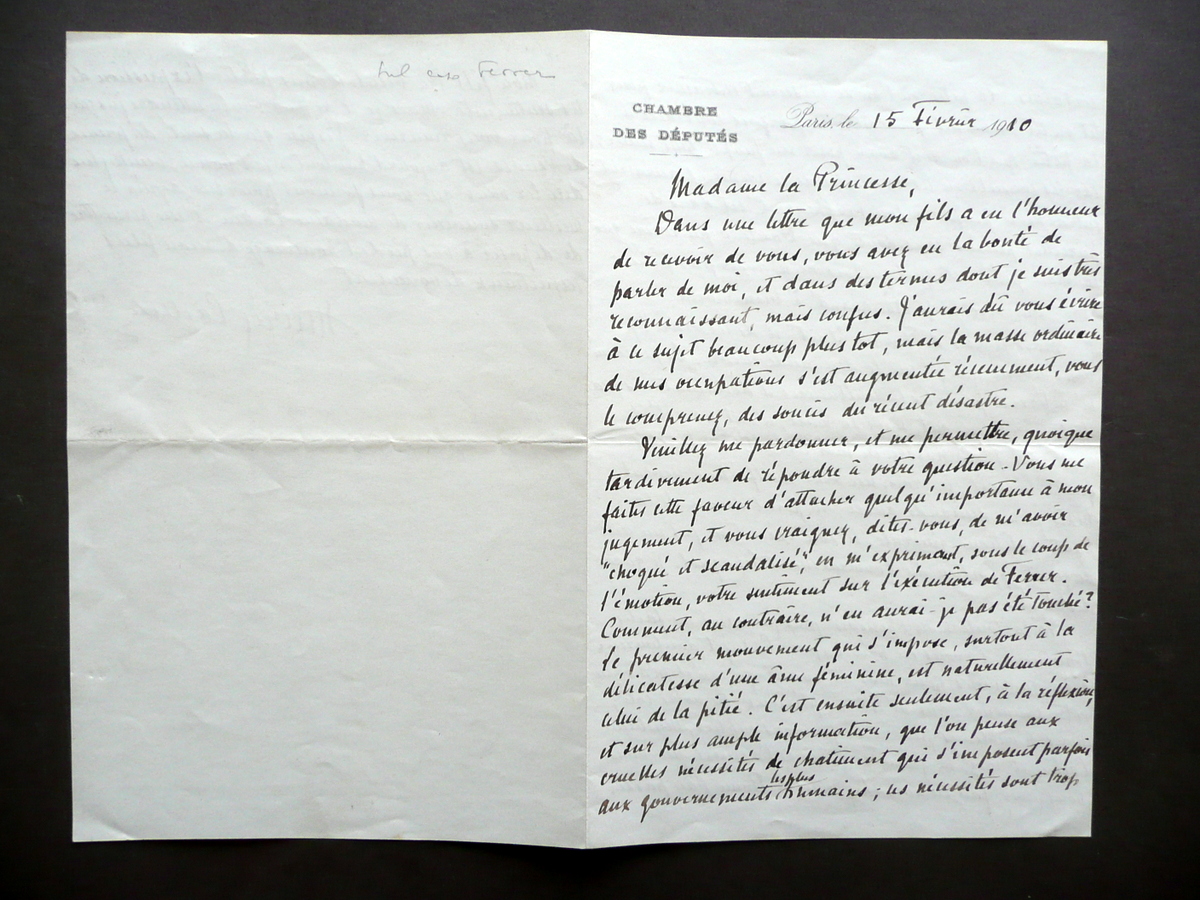 sul caso Ferrer
CHAMBRE
DES DÉPUTÉS
Paris, le 15 Février 1910
Madame la Princesse,
Dans une lettre que mon fils a eu l'honneur
de recevoir de vous, vous avez eu la bonté de
parler de moi, et dans des termes dont je suis très
reconnaissant, mais confus. J'aurais dû vous écrire
à ce sujet beaucoup plus tot, mais la masse ordinaire
de mes occupations s'est augmentée récemment, vous
le comprenez, des soucis du récent désastre.
Veuillez me pardonner, et me permettre, quoique
tardivement de répondre à votre question - Vous me
faites cette faveur d'attacher quelqu'importance à mon
jugement, et vous craignez, dites-vous, de m'avoir
"choqué et scandalisé", en m'exprimant, sous le coup de
l'émotion, votre sentiment sur l'exécution de Ferrer.
Comment, au contraire, n'en aurai-je pas été touché?
Le premier mouvement qui s'impose, surtout à la
délicatesse d'une âme féminine, est naturellement
celui de la pitié. C'est ensuite seulement, à la réflexion,
et sur plus ample information, que l'on pense aux
cruelles nécessités de chatiment qui s'imposent parfois
aux gouvernements les plus humains ; ces nécessités sont trop